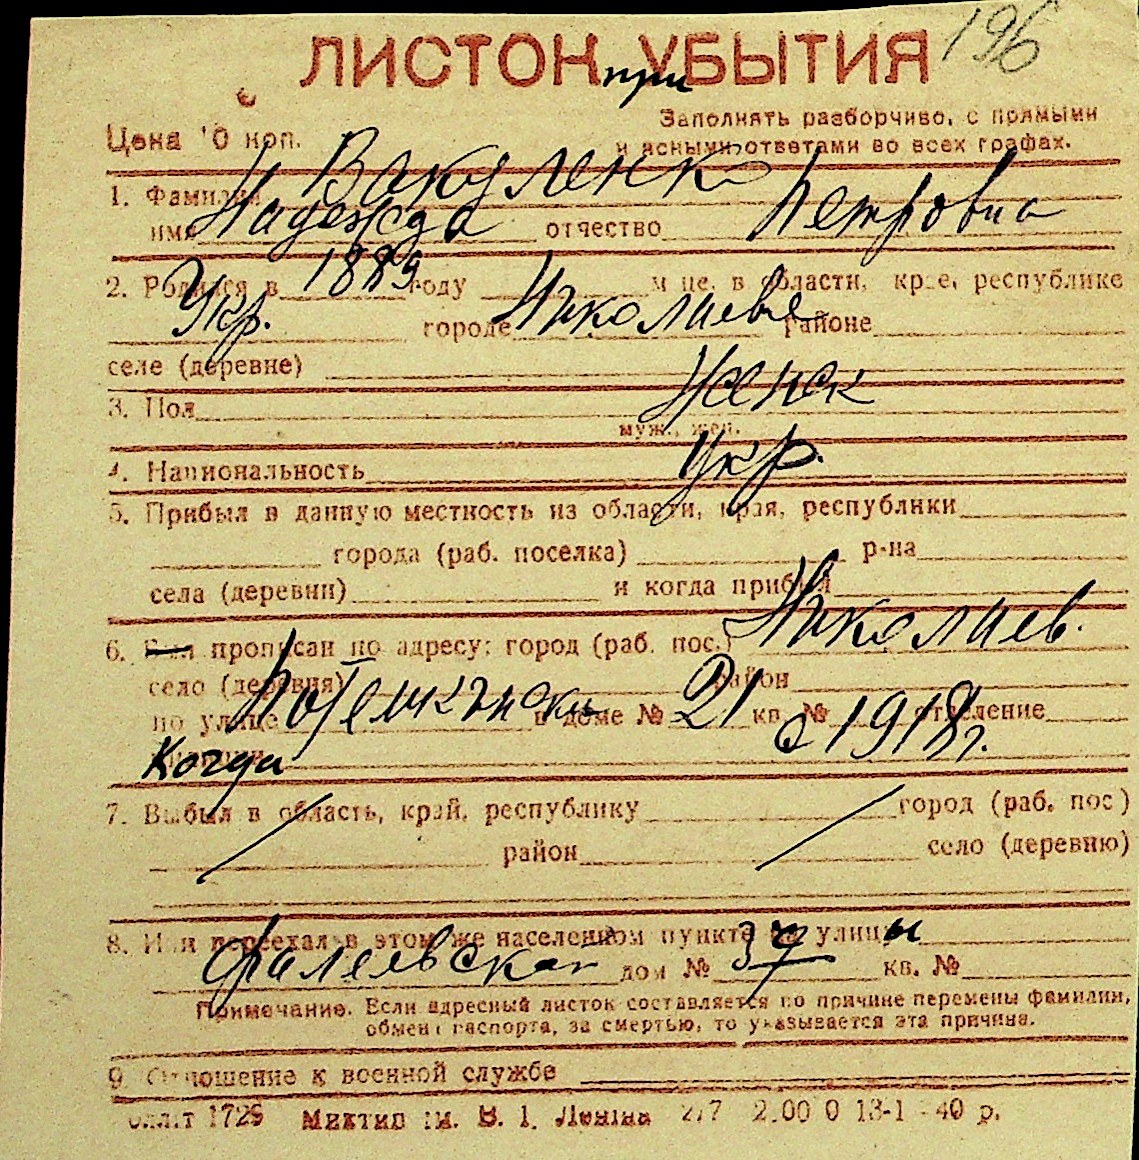 196
ЛИСТОК при УБЫТИЯ
Цена 10 коп.
Заполнять разборчиво, с прямыми
и ясными ответами во всех графах.
1. Фамилия Вакуленко
имя Надежда отчество Петровна
2. Родился в 1889 году м-це, в области, крае, республике
Укр. городе Николаеве районе
селе (деревне)
3. Пол Женск
муж., жен.
4. Национальность Укр.
5. Прибыл в данную местность из области, края, республики
города (раб. поселка) р-на
села (деревни) и когда прибыл
6. прописан по адресу: город (раб. пос.) Николаев.
село (деревня) район
по улице Потемкинской в доме № 21 кв. № отделение
милиции Когда с 1918 г.
7. Выбыл в область, край, республику город (раб. пос)
район село (деревню)
8. Или переехал в этом же населенном пункте улицы
Фалеевская дом № 37 кв. №
Примечание. Если адресный листок составляется по причине перемены фамилии,
обмена паспорта, за смертью, то указывается эта причина.
9. Отношение к военной службе
1729 им. В. И. Ленина 2.00 0 13-1-40 р.